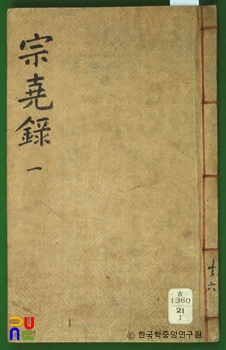 宗堯錄
一
共六
古
1360
21
1
© 한국학중앙연구원